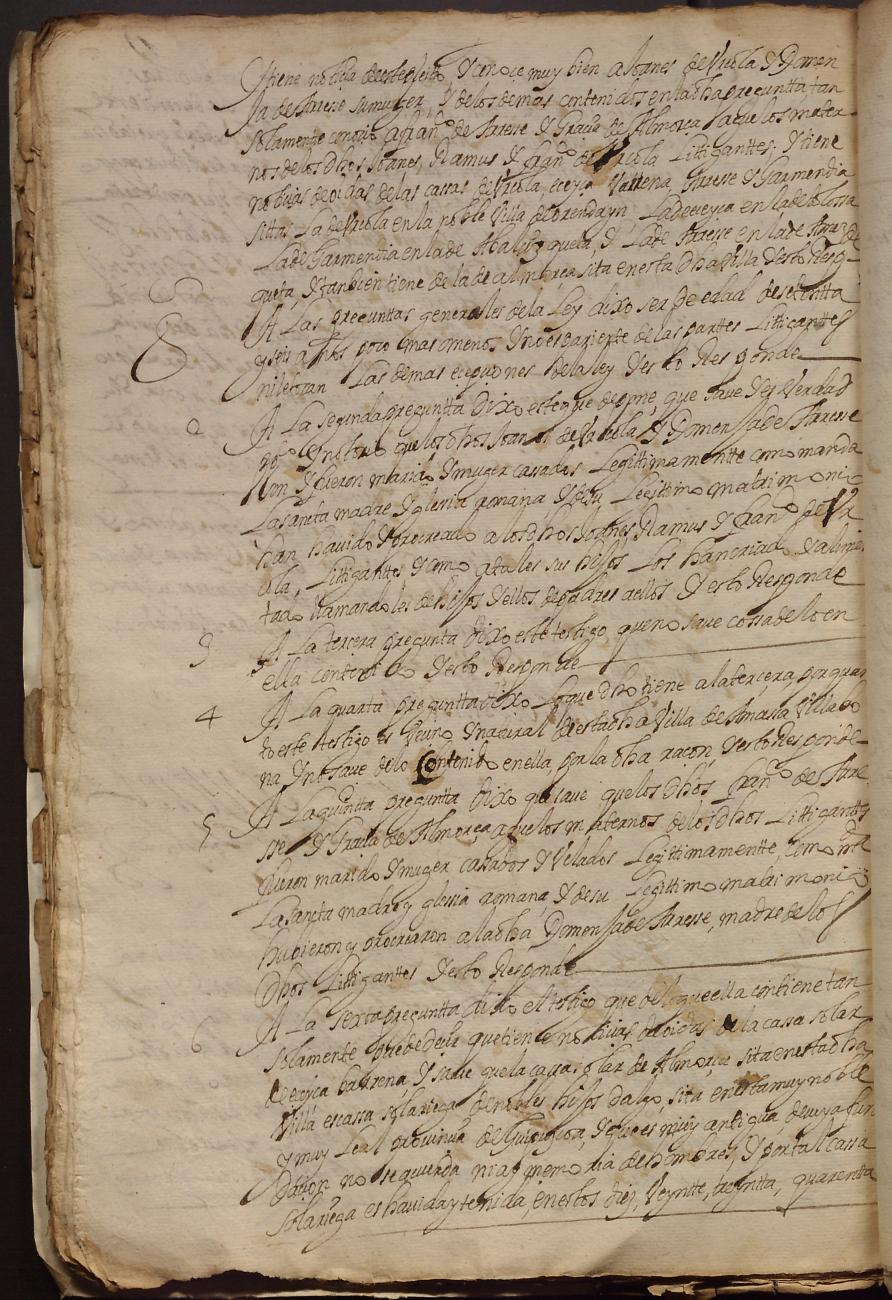 y tiene notiçia deeste pleito, y conoce muy bien a Joanes de Vrcola y Domen
ja de Yarsse su muger, y de los demas contenidos en la dha pregunta tan
solamente conoçio a fran.co de Yarsse y Graçia de Almorça aguelos mater
nos de los dhos Joanes, Ramus y fran.co de Vrcola Littigantes, y tiene
notiçias de oidas de las cassas de Vrcola, eceyça Varrena, Yarsse y Garmendia
sittas La de Vrcola en la noble Villa de orendayn, La de eceyça en la de tolossa
La de Garmendia en la de Abalzizqueta, y La de Yarsse en la de
queta, y tanbien tiene de la de almorça sita en esta dha Villa y esto Resp
A Las preguntas generales de la Ley dixo ser de edad de setentta
y seis años poco mas o menos y no es pariente de las partes Littigantes
ni le tocan Las demas eçepçiones de la ley y esto Responde
2 A La segunda pregunta dixo este que depone, que save y es Verdad
notorio que los dhos Joanes de Vrcola y Domenja de Yarsse
son y fueron marido y muger cassados Legittimamentte como manda
La sancta madre yglesia Romana y de su Legitimo matrimonio
han havido y procreado a los dhos Joanes, Ramus y fran.co de Vr
cola, Littigantes y como a tales sus hijos los han criado y alimen
tado llamandoles de hijos y ellos de padres a ellos y esto Responde
3 A La tercera pregunta dixo este testigo, que no save cossa de lo en
ella contenido y esto Responde
4 A La quarta preguntta dixo Lo que dho tiene a la tercera, por quan
to este testigo es Veçino y natural de esta dha Villa de Amassa Villabo
na y no save de lo Contenido en ella, por la dha raçon, y esto Responde
5 A La quintta preguntta dixo que save que los dhos fran.co de Yarr
sse y Graçia de Almorça aguelos maternos de los dhos Littigantes
fueron marido y muger cassados y Velados Legittimamentte, como m.da
La sancta madre yglesia romana, y de su Legittimo matrimonio
hubieron y procriaron a la dha Domenja de Yarsse, madre de los
dhos Littigantes y esto Responde
6 A La sexta preguntta dixo el testigo que de lo que ella contiene tan
solamente puede deçir que tiene notiçias de oidas de la cassa solar
de eceyça barrena, y save que la cassa solar de Almorça sita en esta dha
Villa es cassa solariega de nobles hijos dalgo, sita en esta muy noble
y muy Leal provinçia de Guipuzcoa, y que es muy antigua de cuya fun
daçion no se aquerda ni ay memoria de hombres, y por tal cassa
solariega es havida y tenida, en estos diez, Veyntte, treyntta, quarentta